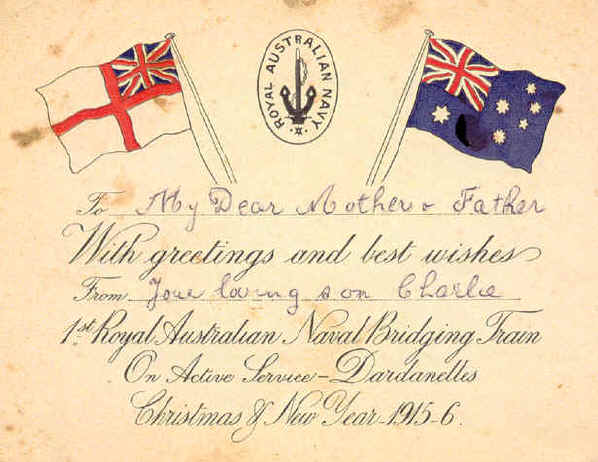 ROYAL AUSTRALIAN NAVY
To My Dear Mother & Father
With greetings and best wishes
From Your loving son Charlie
1st Royal Australian Naval Bridging Train
On Active Service - Dardanelles
Christmas & New Year - 1915-6.